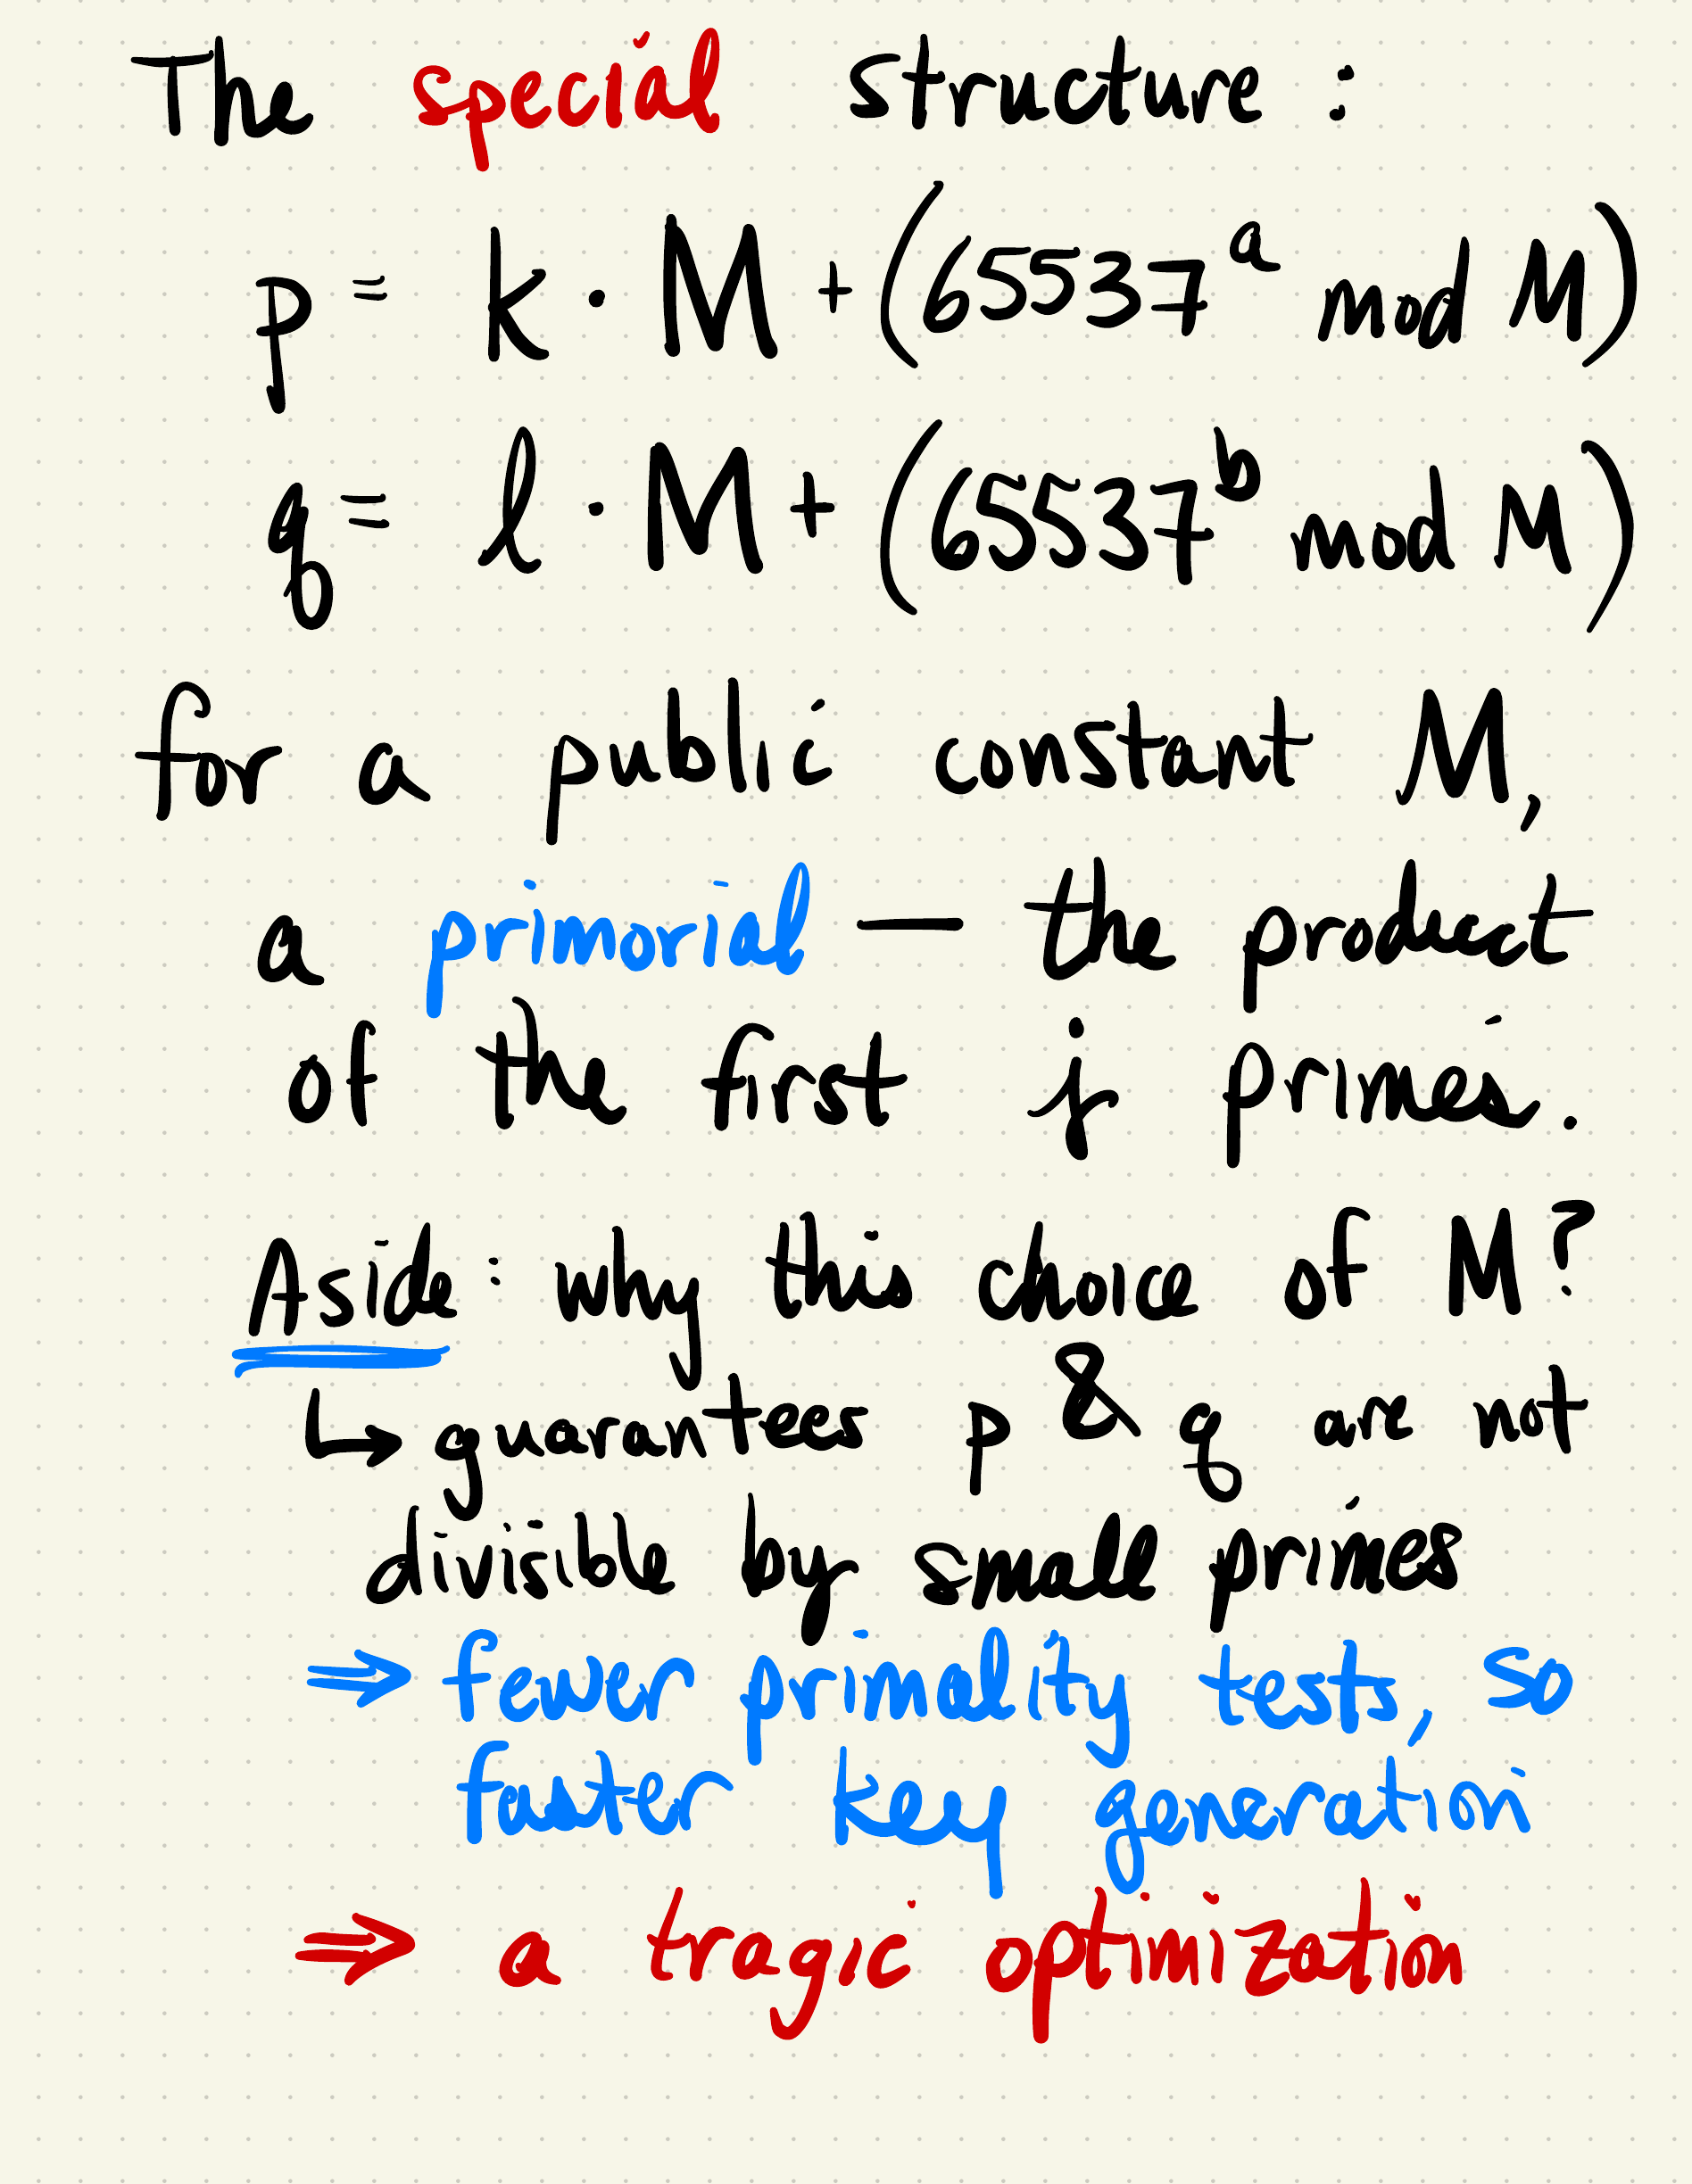 The special structure:
p = k · M + (65537^a mod M)
q = l · M + (65537^b mod M)
for a public constant M,
a primorial — the product
of the first j primes.
Aside: why this choice of M?
↳ guarantees p & q are not
divisible by small primes
⇒ fewer primality tests, so
faster key generation
⇒ a tragic optimization